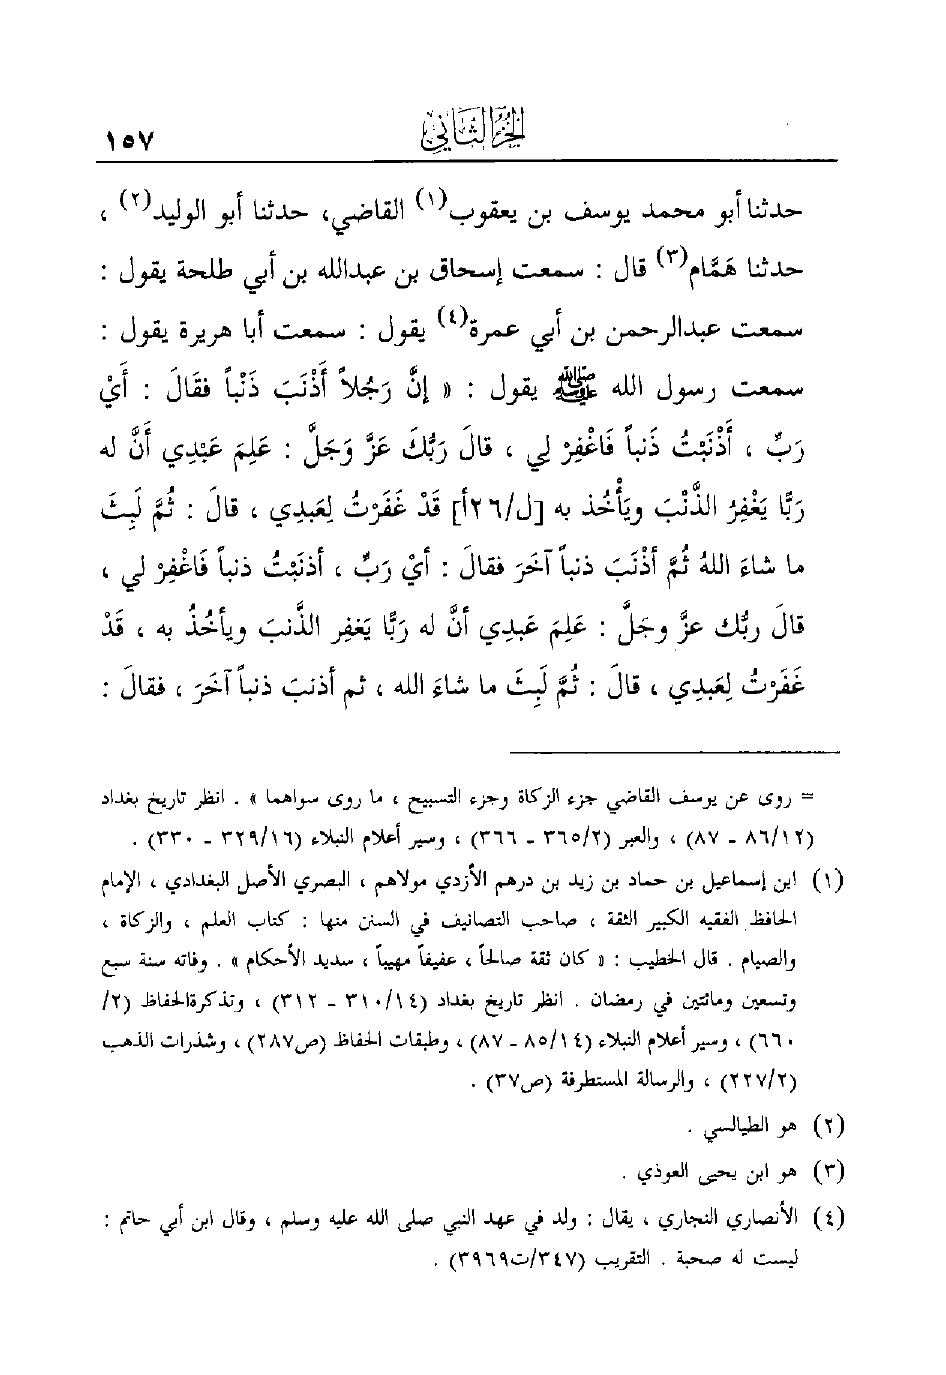 الجزء الثاني
١٥٧
حدثنا أبو محمد يوسف بن يعقوب(١) القاضي، حدثنا أبو الوليد(٢) ،
حدثنا هَمَّام(٣) قال : سمعت إسحاق بن عبدالله بن أبي طلحة يقول :
سمعت عبدالرحمن بن أبي عمرة(٤) يقول : سمعت أبا هريرة يقول :
سمعت رسول الله ﷺ يقول : « إنَّ رَجُلاً أَذْنَبَ ذَنْباً فقَالَ : أَيْ
رَبِّ ، أَذْنَبْتُ ذَنباً فَاغْفِرْ لِي ، قالَ رَبُّكَ عَزَّ وَجَلَّ : عَلِمَ عَبْدِي أَنَّ له
رَبًّا يَغْفِرُ الذَّنْبَ ويَأْخُذ به [ل/٢٦أ] قَدْ غَفَرْتُ لِعَبدِي ، قالَ : ثُمَّ لَبِثَ
ما شاءَ اللهُ ثُمَّ أذْنَبَ ذنباً آخَرَ فقالَ : أيْ ربِّ ، أذنَبْتُ ذنباً فَاغْفِرْ لي ،
قالَ ربُّك عزَّ وجَلَّ : عَلِمَ عَبدِي أنَّ له رَبًّا يَغفِر الذَّنبَ ويأخُذُ به ، قَدْ
غَفَرْتُ لِعَبدِي ، قالَ : ثُمَّ لَبِثَ ما شاءَ الله ، ثم أذنبَ ذنباً آخَرَ ، فقالَ :
= روى عن يوسف القاضي جزء الزكاة وجزء التسبيح ، ما روى سواهما » . انظر تاريخ بغداد
(٨٦/١٢ - ٨٧) ، والعبر (٣٦٥/٢ - ٣٦٦) ، وسير أعلام النبلاء (٣٢٩/١٦ - ٣٣٠) .
(١) ابن إسماعيل بن حماد بن زيد بن درهم الأزدي مولاهم ، البصري الأصل البغدادي ، الإمام
الحافظ الفقيه الكبير الثقة ، صاحب التصانيف في السنن منها : كتاب العلم ، والزكاة ،
والصيام . قال الخطيب : « كان ثقة صالحاً ، عفيفاً مهيباً ، سديد الأحكام » . وفاته سنة سبع
وتسعين ومائتين في رمضان . انظر تاريخ بغداد (٣١٠/١٤ - ٣١٢) ، وتذكرةالحفاظ (٢/
٦٦٠) ، وسير أعلام النبلاء (٨٥/١٤ - ٨٧) ، وطبقات الحفاظ (ص٢٨٧) ، وشذرات الذهب
(٢٢٧/٢) ، والرسالة المستطرفة (ص٣٧) .
(٢) هو الطيالسي .
(٣) هو ابن يحيى العوذي .
(٤) الأنصاري النجاري ، يقال : ولد في عهد النبي صلى الله عليه وسلم ، وقال ابن أبي حاتم :
ليست له صحبة . التقريب (٣٤٧/ت٣٩٦٩) .